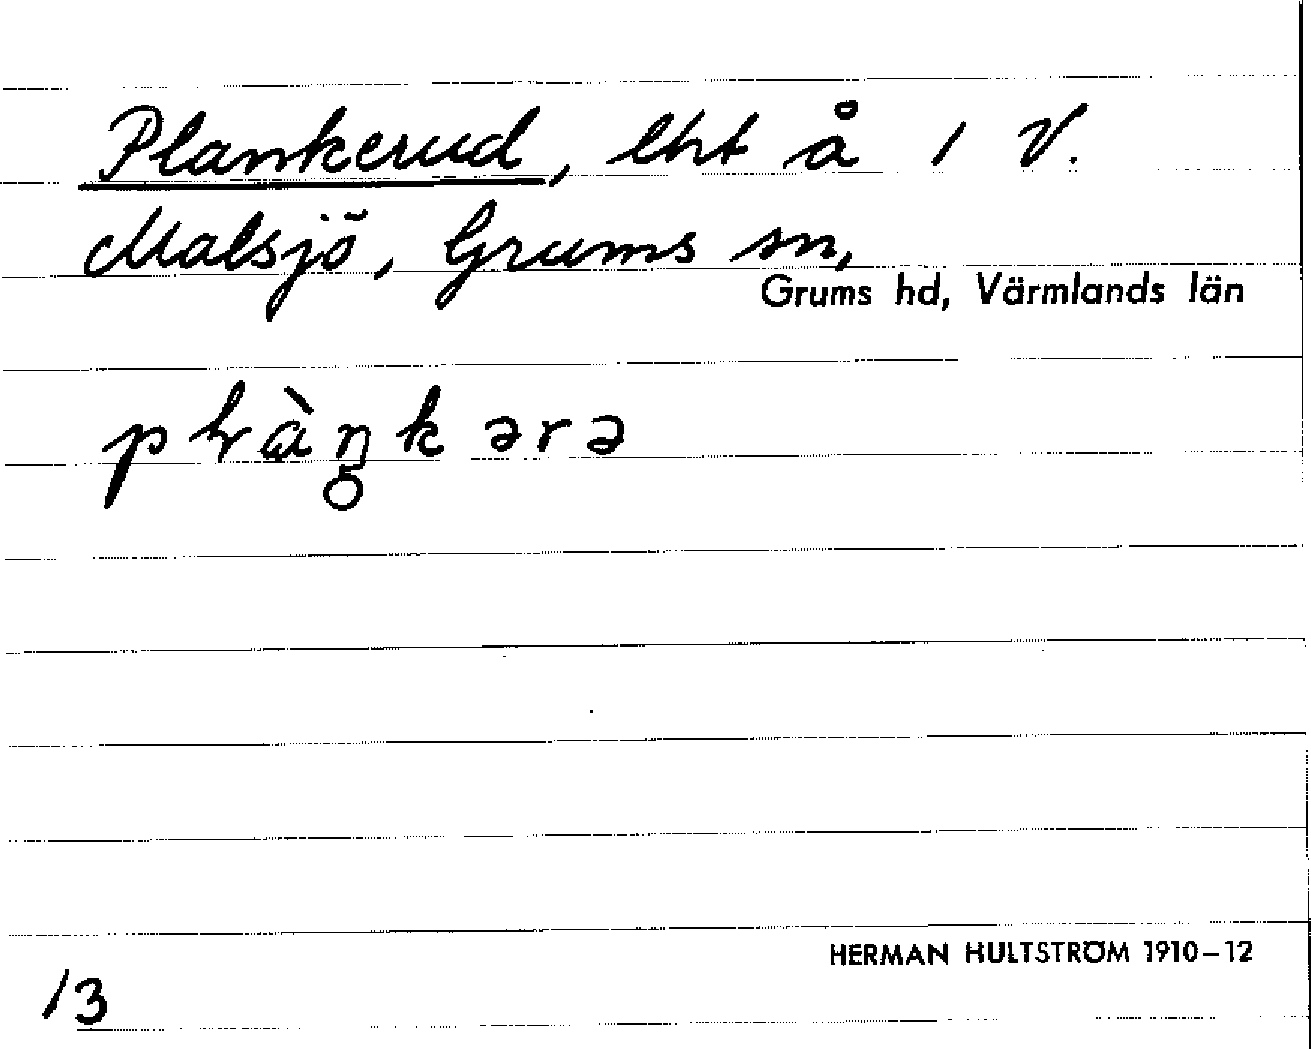 Plankerud, lht å 1 V.
Malsjö, Grums sn,
Grums hd, Värmlands län
pɬàŋ̥kərə
HERMAN HULTSTRÖM 1910–12
13